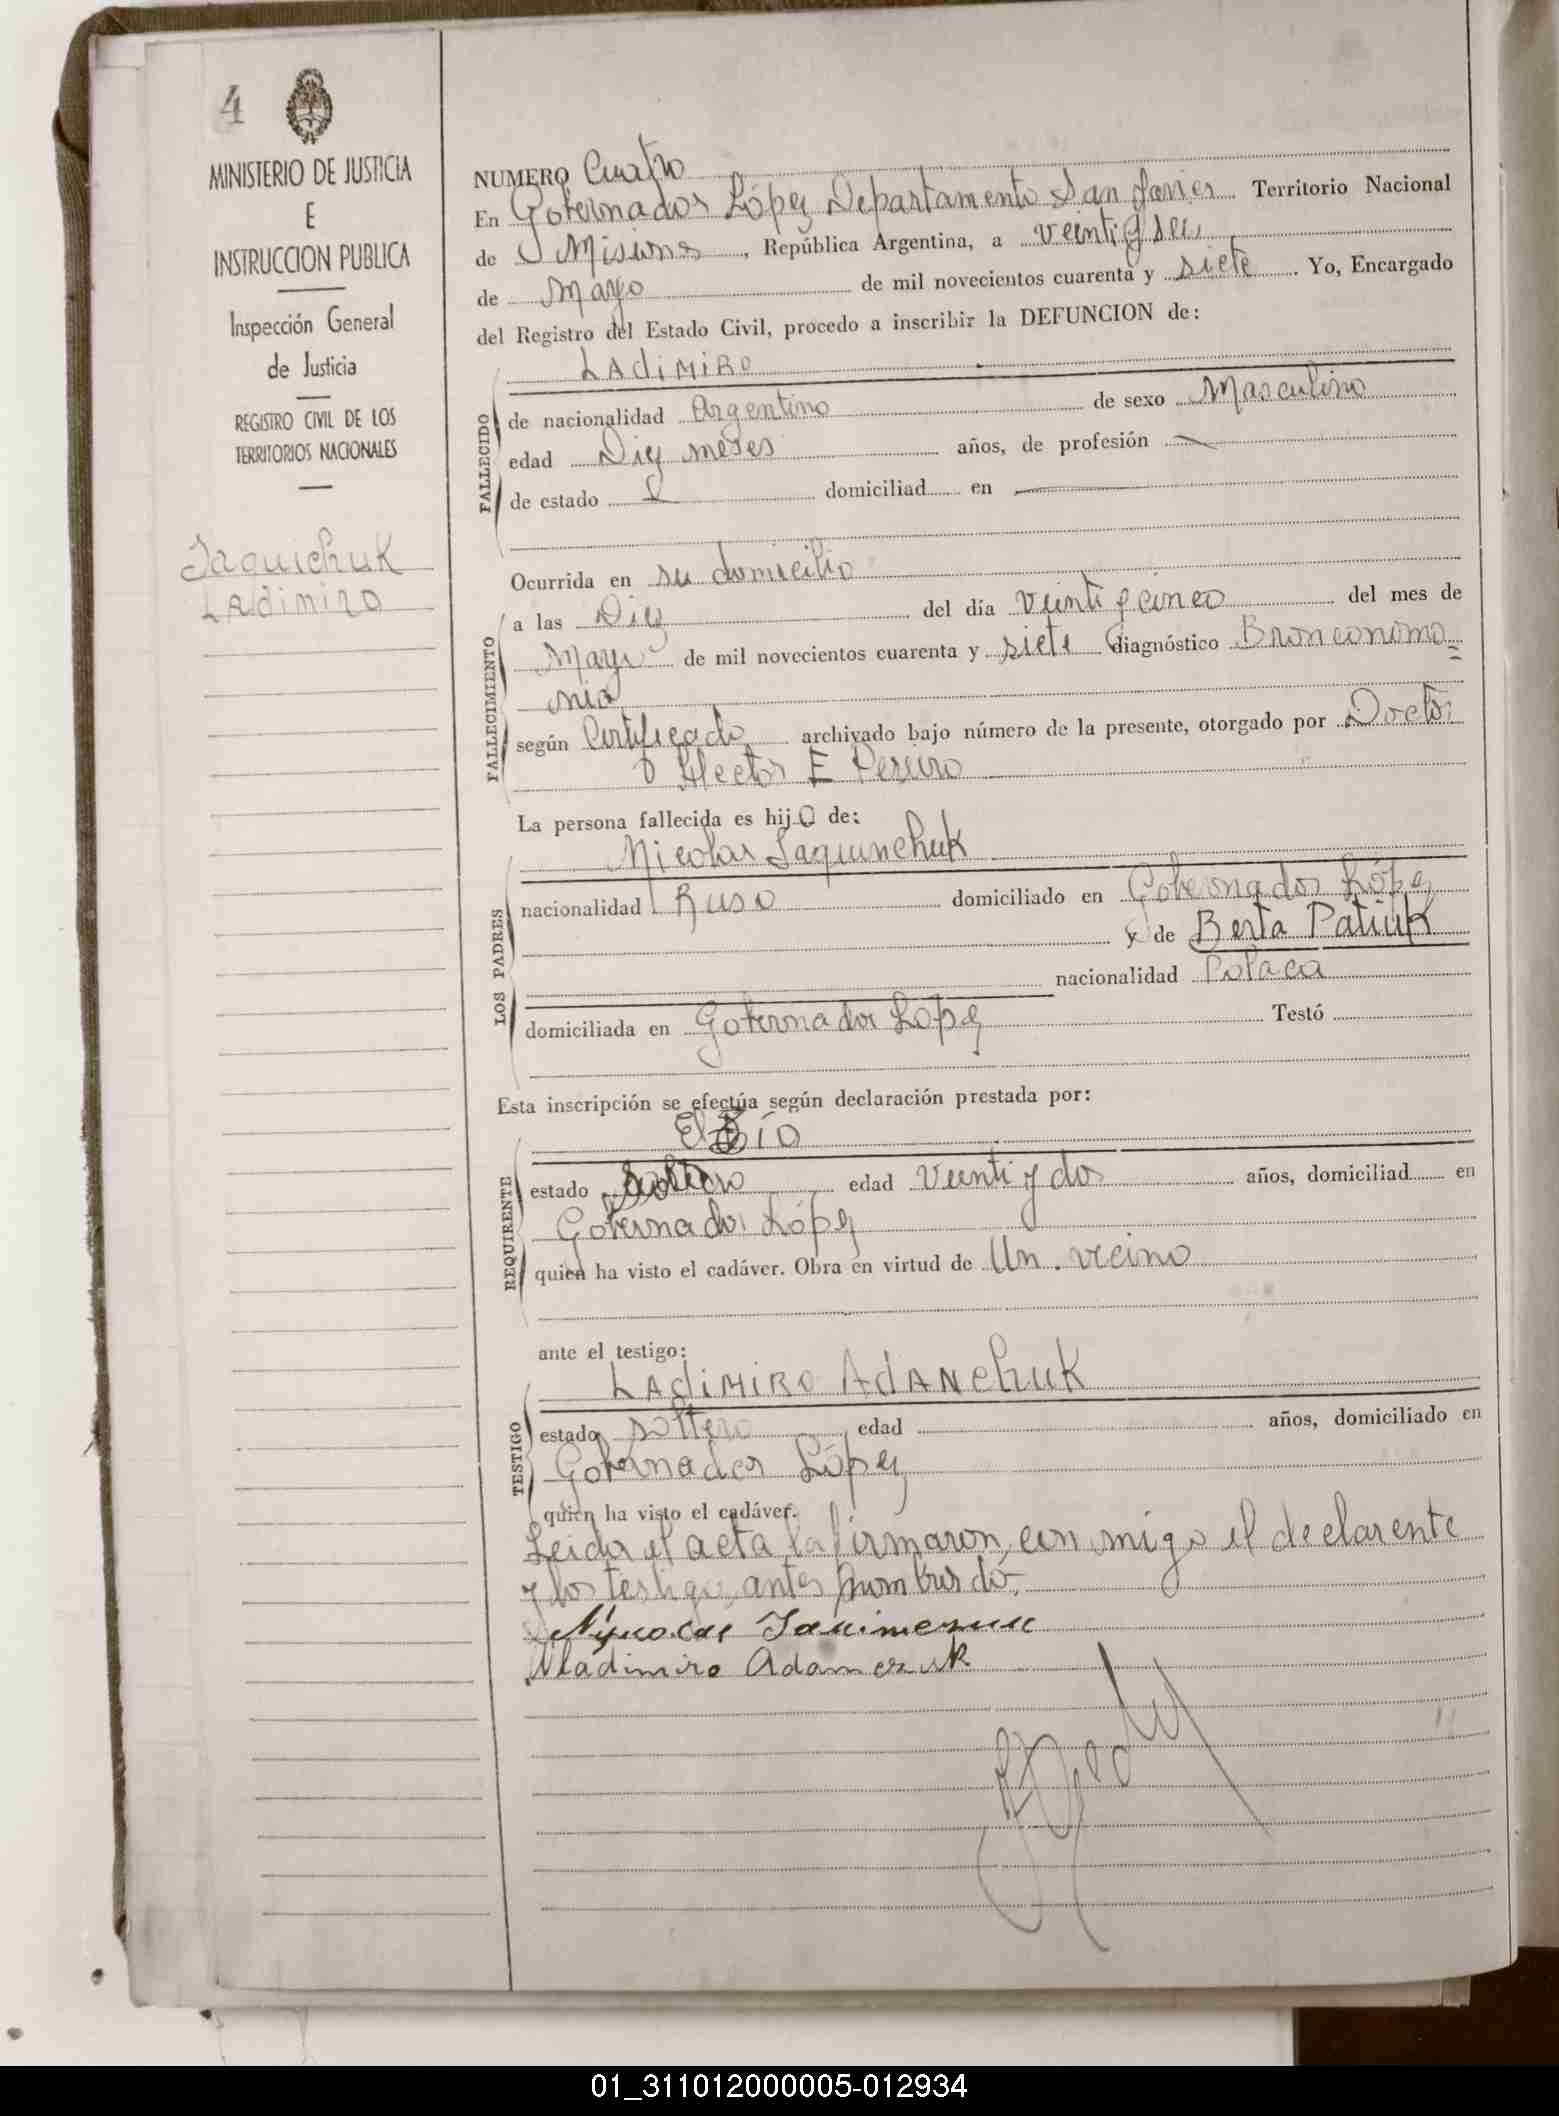 4
MINISTERIO DE JUSTICIA
E
INSTRUCCION PUBLICA
Inspección General
de Justicia
REGISTRO CIVIL DE LOS
TERRITORIOS NACIONALES
Jaquichuk
LAdimiro
NUMERO Cuatro
En Gobernador López Departamento San Javier Territorio Nacional
de Misiones, República Argentina, a veinti y seis
de Mayo de mil novecientos cuarenta y siete. Yo, Encargado
del Registro del Estado Civil, procedo a inscribir la DEFUNCION de:
LAdiMiRo
FALLECIDO
de nacionalidad Argentino de sexo Masculino
edad Diez meses años, de profesión
de estado domiciliad en
Ocurrida en su domicilio
FALLECIMIENTO
a las Diez del día veinti y cinco del mes de
Mayo de mil novecientos cuarenta y siete diagnóstico Bronconumo=
nia
según Certificado archivado bajo número de la presente, otorgado por Doctor
Hector E Pereiro
La persona fallecida es hijo de:
LOS PADRES
Nicolas Jaquinchuk
nacionalidad Ruso domiciliado en Gobernador López
y de Berta Patiuk
nacionalidad Polaca
domiciliada en Gobernador López Testó
Esta inscripción se efectúa según declaración prestada por:
REQUIRENTE
El Tío
estado soltero edad Veinti y dos años, domiciliad en
Gobernador López
quien ha visto el cadáver. Obra en virtud de Un vecino
ante el testigo:
TESTIGO
LAdiMiRo AdANchuk
estado soltero edad años, domiciliado en
Gobernador López
quien ha visto el cadáver.
Leida el acta la firmaron con migo el declarente
y los testigo antes
Vladimiro Adamczuk
01_311012000005-012934